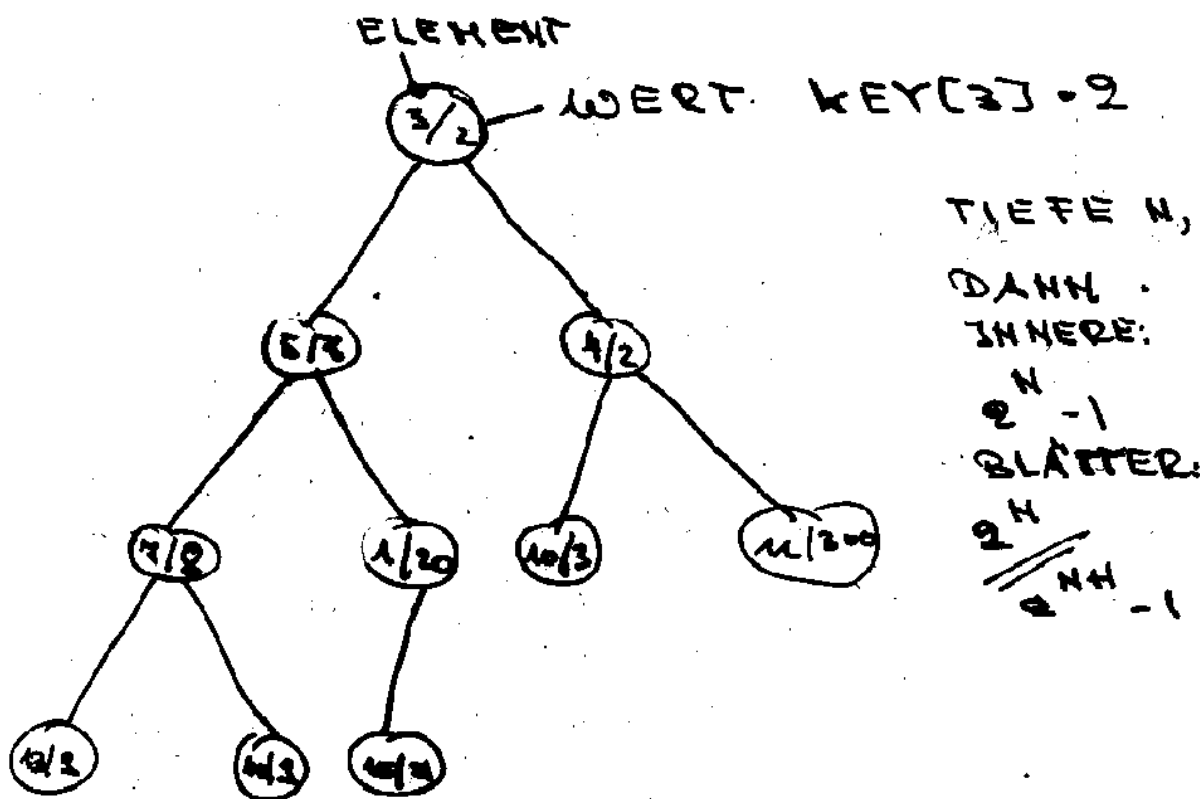 ELEMENT
3/2
WERT KEY[3] = 2
TIEFE N,
DANN
INNERE:
2^N - 1
BLÄTTER:
2^N
2^N+1 - 1
4/2
1/20
10/3
11/200